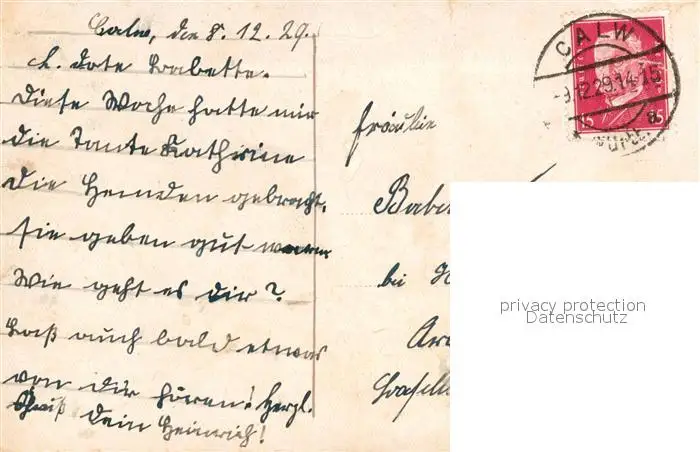 Calw, den 8.12.29.
L. Dote Babette.
Diese Woche hatte mir
die Tante Katherine
die Hemden gebracht.
sie geben gut warm
Wie geht es dir?
Laß auch bald etwas
von dir hören! Herzl.
Gruß Dein Heinrich!
CALW
-9.12.29.14-15
15
Fräulein
Babe
bei H
privacy protection
Datenschutz